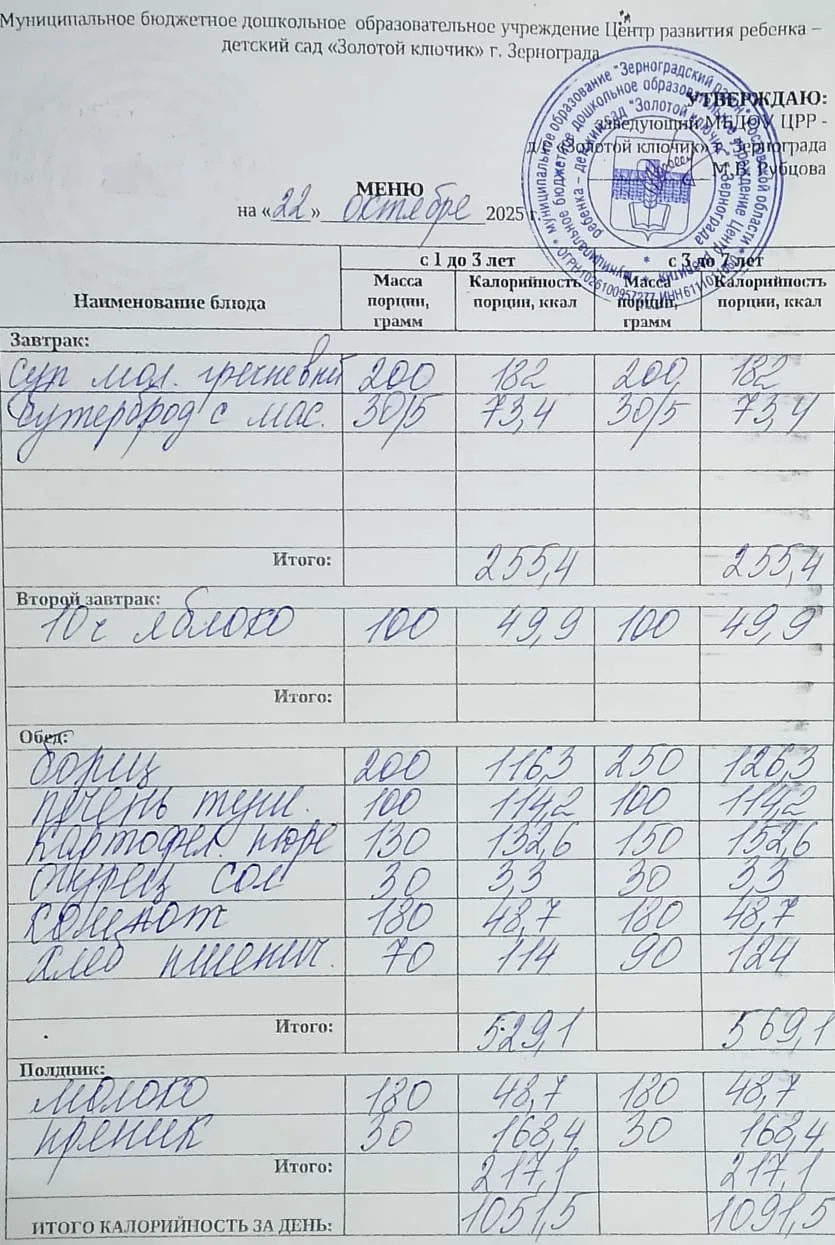 Муниципальное бюджетное дошкольное образовательное учреждение Центр развития ребенка –
детский сад «Золотой ключик» г. Зернограда
УТВЕРЖДАЮ:
заведующий МБДОУ ЦРР -
д/с «Золотой ключик» г. Зернограда
М.В. Рубцова
МЕНЮ
на «22» октября 2025 г.
Наименование блюда с 1 до 3 лет с 3 до 7 лет
Масса порции, грамм Калорийность порции, ккал Масса порции, грамм Калорийность порции, ккал
Завтрак:
суп мол. гречневый 200 182 200 182
бутерброд с мас. 30/5 73,4 30/5 73,4
Итого: 255,4 255,4
Второй завтрак:
10ч яблоко 100 49,9 100 49,9
Итого:
Обед:
борщ 200 116,3 250 126,3
печень туш. 100 114,2 100 114,2
картофел. пюре 130 132,6 150 152,6
огурец сол 30 3,3 30 3,3
компот 180 48,7 180 48,7
хлеб пшенич. 70 114 90 124
Итого: 529,1 569,1
Полдник:
молоко 180 48,7 180 48,7
пряник 30 168,4 30 168,4
Итого: 217,1 217,1
ИТОГО КАЛОРИЙНОСТЬ ЗА ДЕНЬ: 1051,5 1091,5